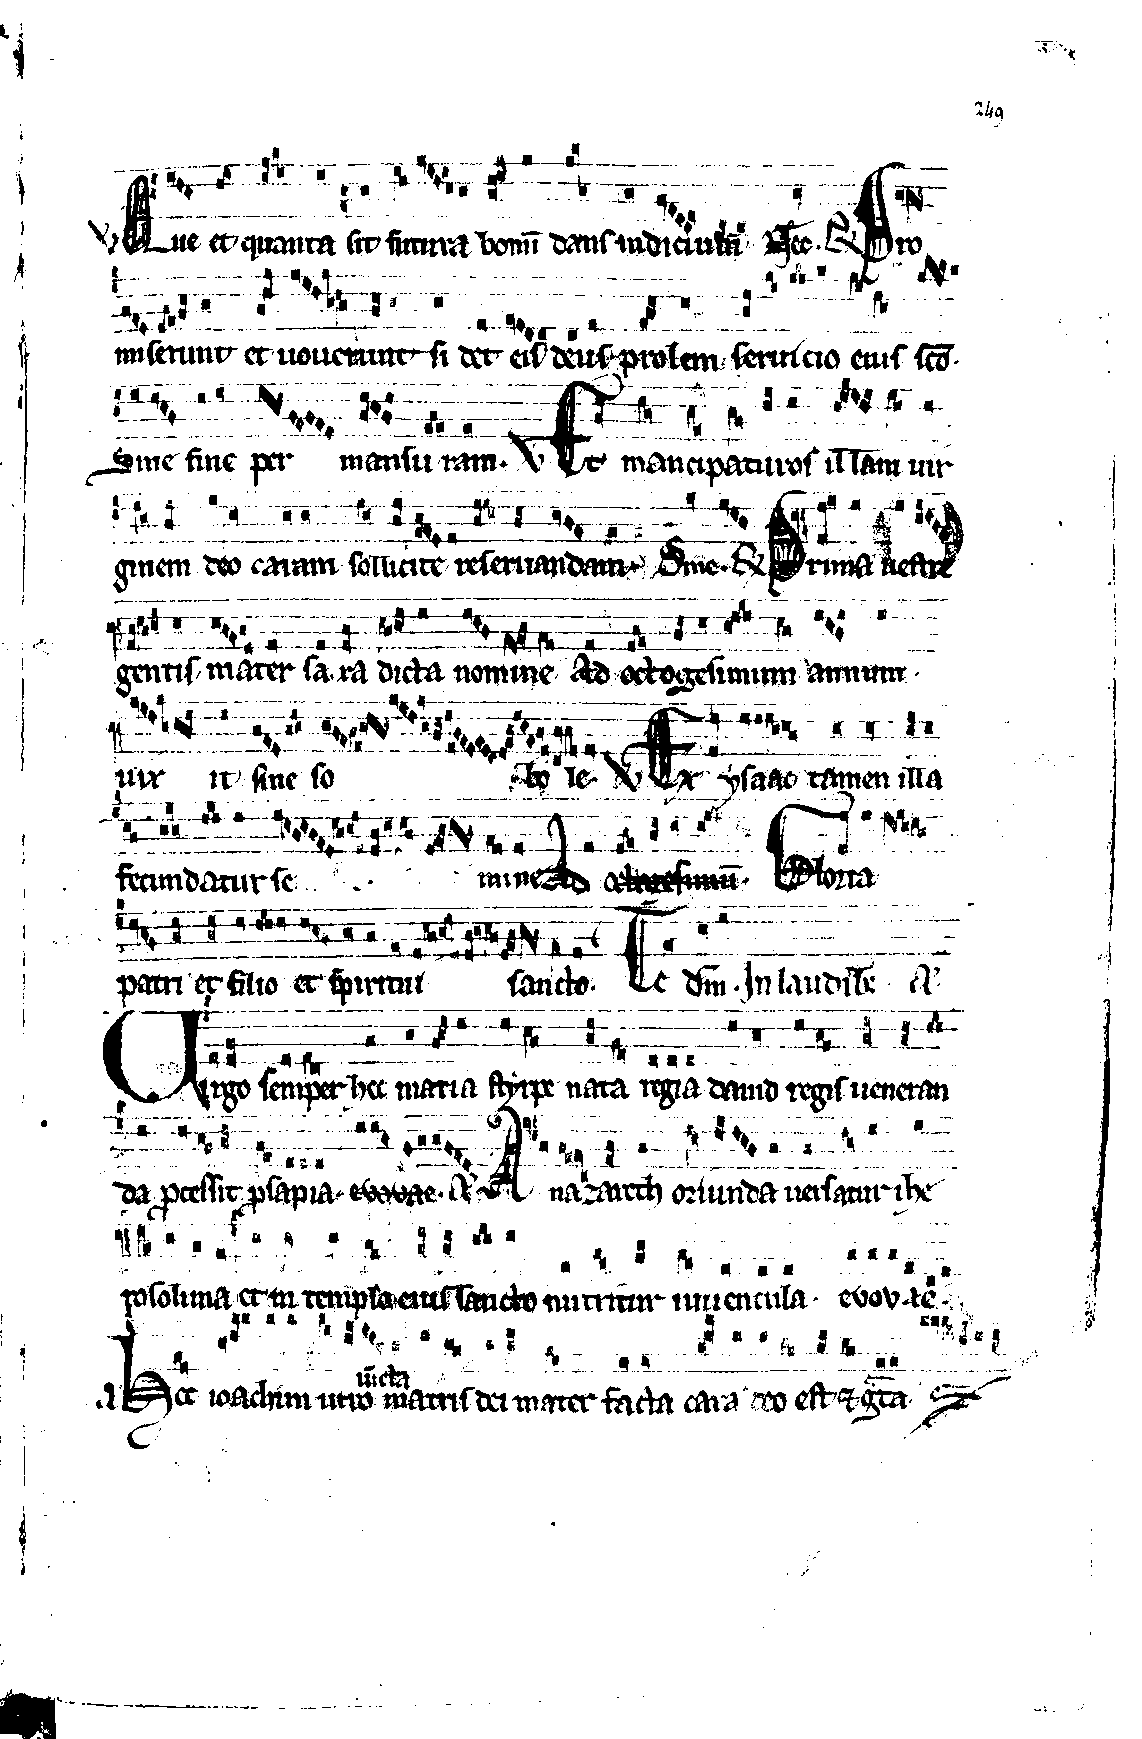 249
V Que et quanta sit futura bonū dans indicium. Hec. R Pro
miserunt et uouerunt si det eis deus prolem seruicio eius sco.
Sine fine per mansu ram. V Et mancipaturos illam uir
ginem deo caram sollicite reseruandam. Sine. R Prima nestre
gentis mater sara dicta nomine Ad octogesimum annum.
uix it sine so bo le. V Ex ysaac tamen illa
fecundatur se mine Ad octogesimū. Gloria
patri et filio et spiritui sancto. Te dm̄. In laudibꝫ A
Virgo semper hec maria styrpe nata regia dauid regis ueneran
da pcessit psapia. evovae. A Nazareth oriunda uersatur ihe
rosolima et in templo eius sancto nutritur iuuencula. evovae.
uincta
A Hec ioachim uiro matris dei mater facta cara deo est & gͣta